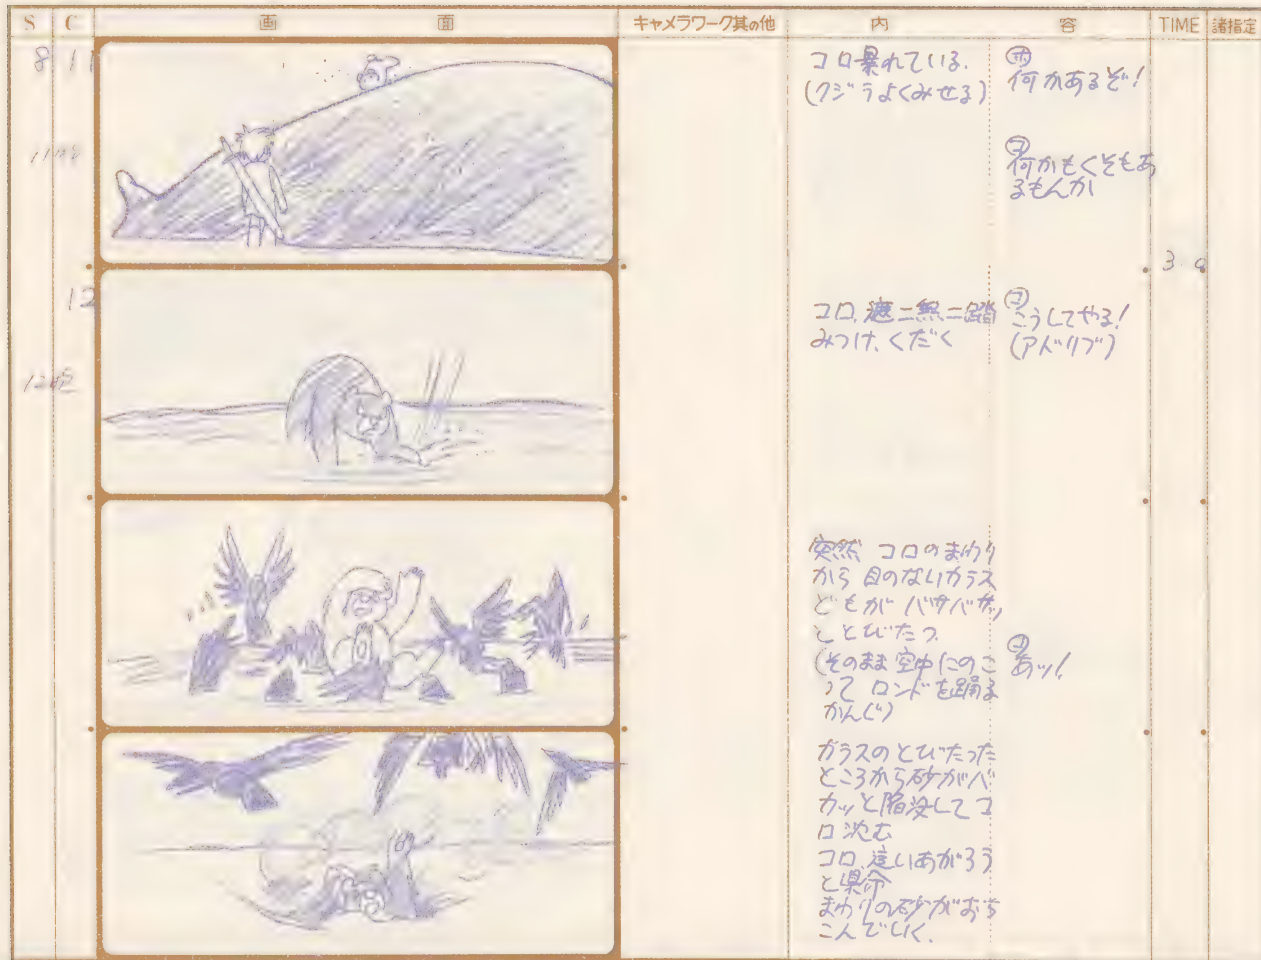 S C 画面 キャメラワーク其の他 内容 TIME 諸指定
8 11
コロ暴れている.
(クジラよくみせる)
㋭
何かあるぞ!
㋙
何かもくそもあ
るもんか
3
12
コロ、遮二無二踏
みつけ、くだく
㋙
こうしてやる!
(アドリブ)
突然 コロのまわり
から 目のないカラス
どもが バサバサッ
ととびたつ
(そのまま空中にのこ
って ロンドを踊る
かんじ)
㋙
あッ!
カラスのとびたった
ところから砂がバ
カッと陥没してコ
ロ沈む
コロ、這いあがろう
と懸命
まわりの砂がおち
こんでいく.